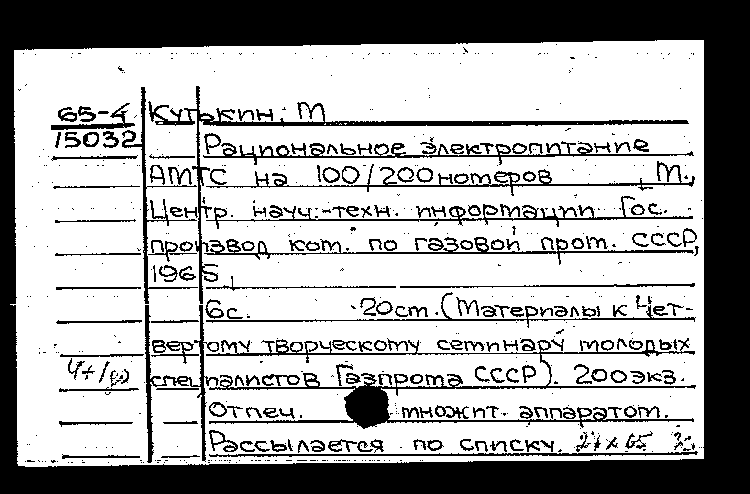 65-4 Кутякин, М
15032 Рациональное электропитание
АМТС на 100/200 номеров М.,
Центр. науч.-техн. информации Гос.
производ ком. по газовой пром. СССР,
1965
6с. 20см. (Материалы к Чет-
вертому творческому семинару молодых
специалистов Газпрома СССР). 200экз.
Отпеч. множит. аппаратом.
Рассылается по списку.